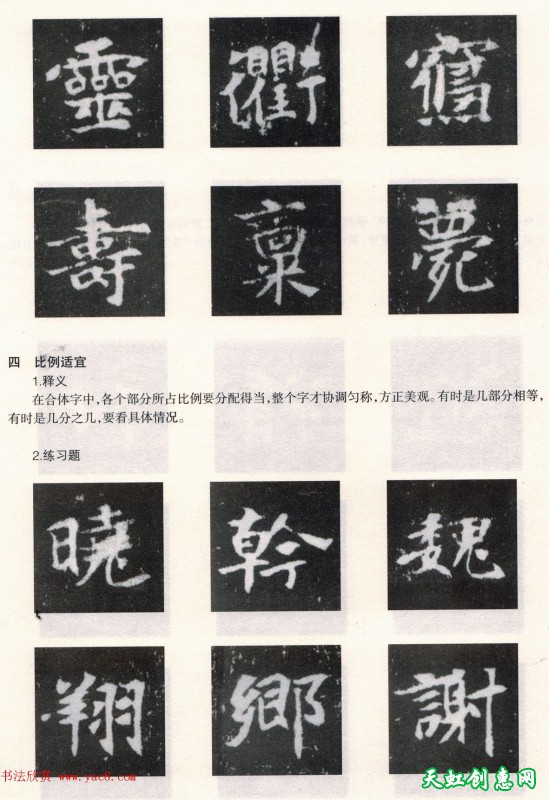 靈 衢 寫
壽 稟 薨
四 比例适宜
1.释义
在合体字中,各个部分所占比例要分配得当,整个字才协调匀称,方正美观。有时是几部分相等,
有时是几分之几,要看具体情况。
2.练习题
曉 幹 魏
翔 鄉 謝
书法欣赏 www.yac8.com
天虹创惠网